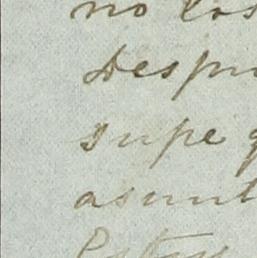 no los
Despu
supe q
asunt